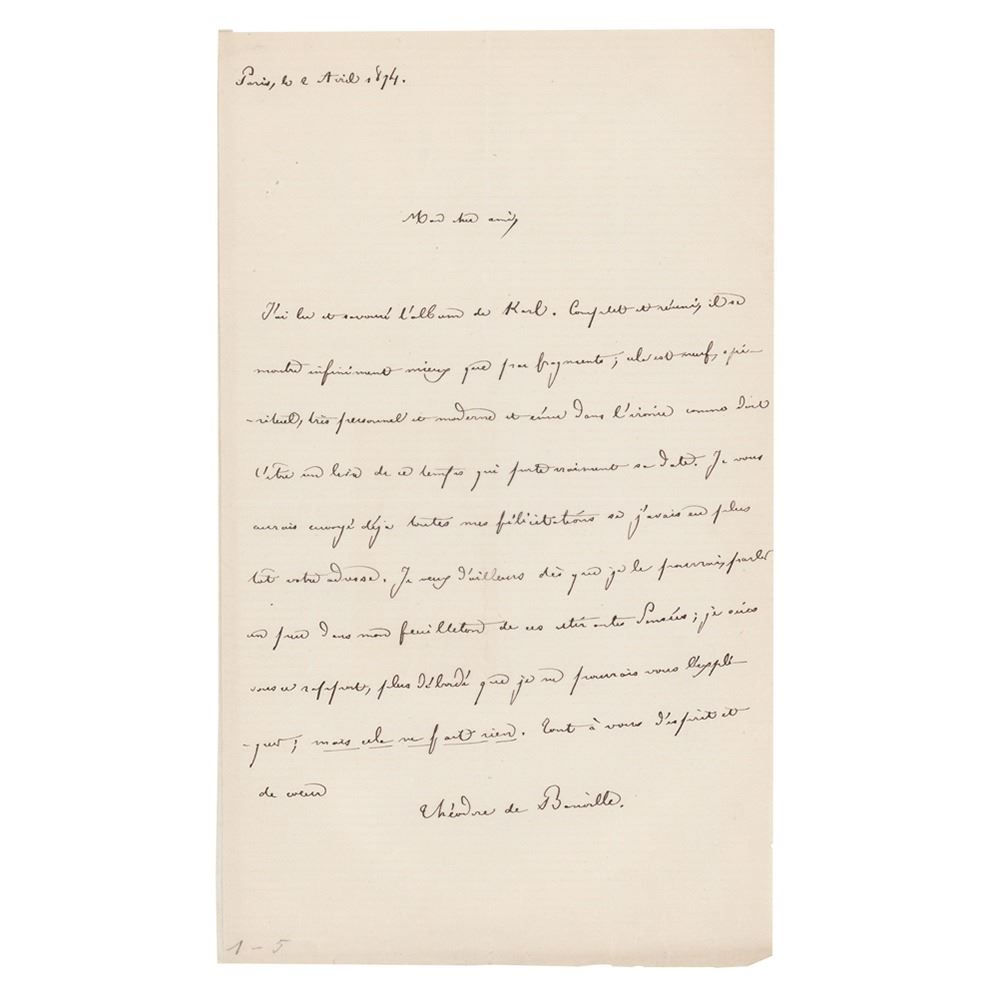 Paris, le 2 Avril 1874.
Mon cher ami,
J'ai lu et savouré l'album de Karl. Complet et réuni, il se
montre infiniment mieux que par fragments; cela est neuf, spi-
-rituel, très personnel et moderne et dans l'ironie comme doit
l'être un livre de ce temps qui porte vraiment sa date. Je vous
aurais envoyé déja toutes mes félicitations si j'avais eu plus
tôt votre adresse. Je veux d'ailleurs dès que je le pourrai, parler
un peu dans mon feuilleton de ces Pensées; je suis
sous ce rapport, plus débordé que je ne pourrais vous l'expli-
-quer; mais cela ne fait rien. Tout à vous d'esprit et
de coeur
Théodore de Banville.
1 - 5